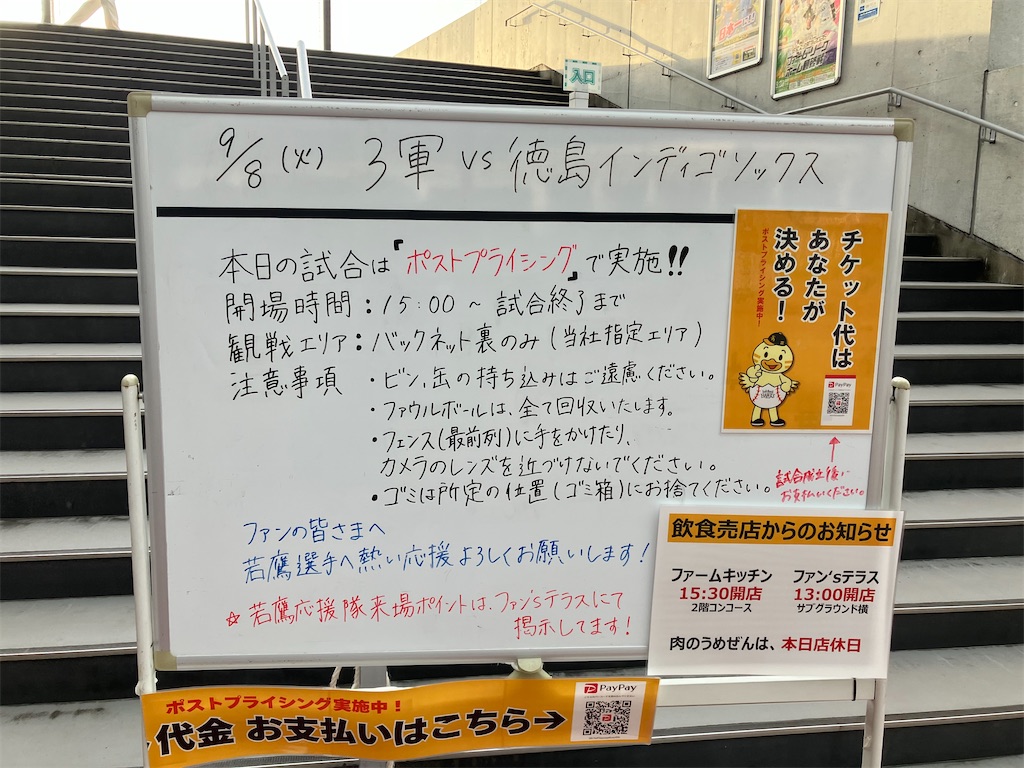 入口
9/8(火) 3軍 VS 徳島インディゴソックス
本日の試合は『ポストプライシング』で実施!!
開場時間:15:00 ~ 試合終了まで
観戦エリア:バックネット裏のみ(当社指定エリア)
注意事項 ・ビン、缶の持ち込みはご遠慮ください。
・ファウルボールは、全て回収いたします。
・フェンス(最前列)に手をかけたり、
カメラのレンズを近づけないでください。
・ゴミは所定の位置(ゴミ箱)にお捨てください。
ファンの皆さまへ
若鷹選手へ熱い応援よろしくお願いします!
☆若鷹応援隊来場ポイントは、ファン'sテラスにて
掲示してます!
チケット代は
あなたが
決める!
ポストプライシング実施中!
PayPay
試合成立後に
お支払いください。
飲食売店からのお知らせ
ファームキッチン
15:30開店
2階コンコース
ファン'sテラス
13:00開店
サブグラウンド横
肉のうめぜんは、本日店休日
ポストプライシング実施中!
代金 お支払いはこちら→
PayPay